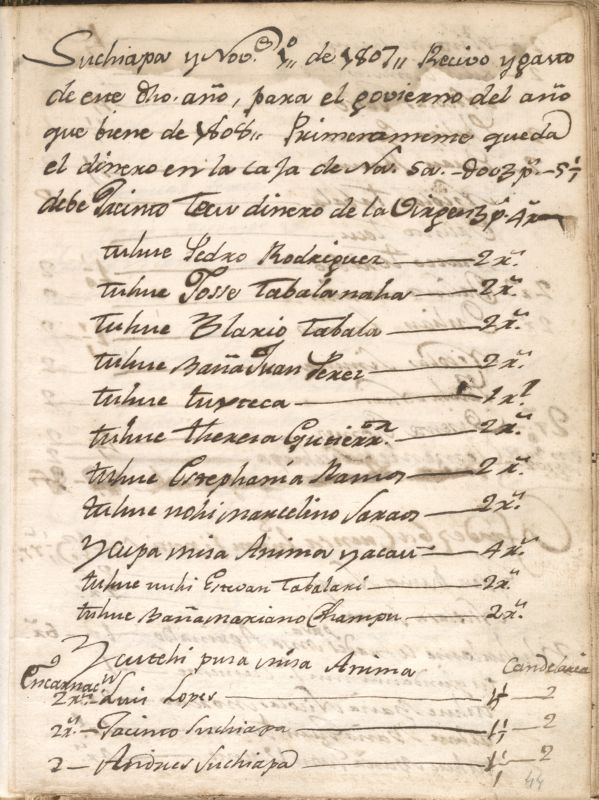 Suchiapa y Nov.e 1o,, de 1807,, Recivo y gasto
de este dho. año, para el govierno del año
que biene de 1808,, Primeramente queda
el dinero en la caja de Na. Sa. - doo3 ps. - 5 1/2
debe Jacinto dinero de la Virgen 3 ps. 4 rs
tuhue Pedro Rodriguez — 2 rs.
tuhue Josse Tabalanaha — 2 rs.
tuhue Blario Tabala — 2 rs.
tuhue Baña Juan Perez — 2 rs.
tuhue tuxteca — 1 rl
tuhue theresa Gutierrz — 2 rs.
tuhue Estephania Ramos — 2 rs.
tuhue nohi Marcelino Saraos — 2 rs.
Ycupa misa Anima yacau — 4 rs.
tuhue nuhi Estevan Tabalari — 2 rs
tuhue Baña Mariano Champu — 2 rs.
Ycutchi pura misa Anima Candelaria
Encarnacn
2 rs. — Luis Lopes — 1 1/2 — 2
2 rs. — Jacinto Suchiapa — 1 1/2 — 2
2 — Andres Suchiapa — 1 1/2 — 2
44